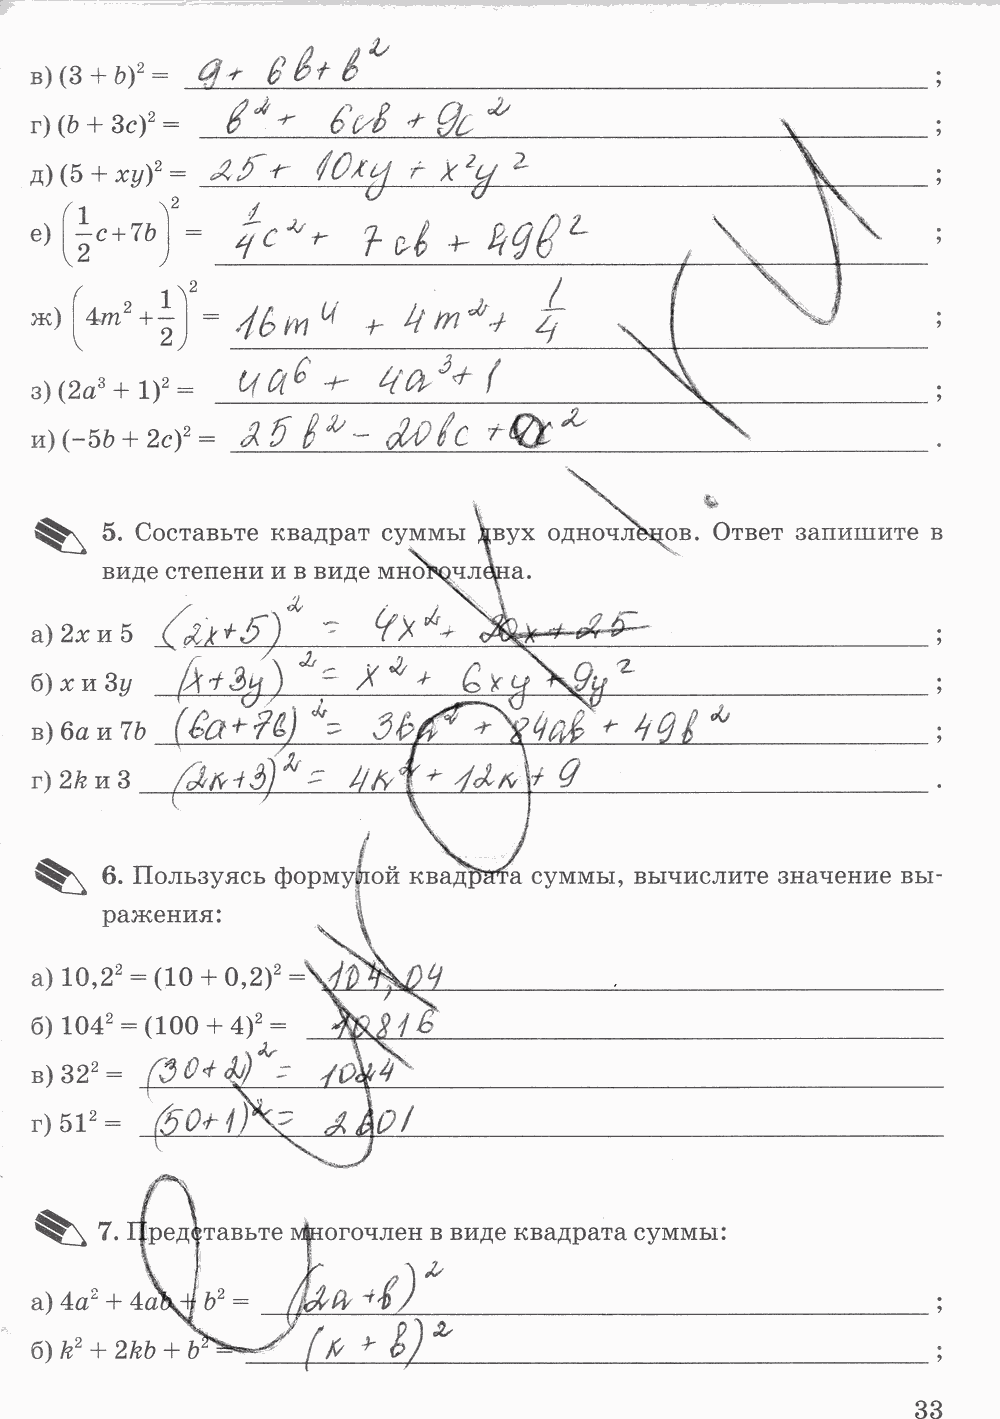 в) (3 + b)² = 9 + 6в + в² ;
г) (b + 3c)² = в² + 6св + 9с² ;
д) (5 + xy)² = 25 + 10xy + x²y² ;
е) (1/2 c + 7b)² = 1/4 c² + 7св + 49в² ;
ж) (4m² + 1/2)² = 16m⁴ + 4m² + 1/4 ;
з) (2a³ + 1)² = 4a⁶ + 4a³ + 1 ;
и) (−5b + 2c)² = 25в² − 20вс + 4с² .
5. Составьте квадрат суммы двух одночленов. Ответ запишите в
виде степени и в виде многочлена.
а) 2x и 5 (2x+5)² = 4x² + 20x + 25 ;
б) x и 3y (x+3y)² = x² + 6xy + 9y² ;
в) 6a и 7b (6a+7в)² = 36a² + 84aв + 49в² ;
г) 2k и 3 (2к+3)² = 4к² + 12к + 9 .
6. Пользуясь формулой квадрата суммы, вычислите значение вы-
ражения:
а) 10,2² = (10 + 0,2)² = 104,04
б) 104² = (100 + 4)² = 10816
в) 32² = (30+2)² = 1024
г) 51² = (50+1)² = 2601
7. Представьте многочлен в виде квадрата суммы:
а) 4a² + 4ab + b² = (2a+в)² ;
б) k² + 2kb + b² = (к + в)² ;
33